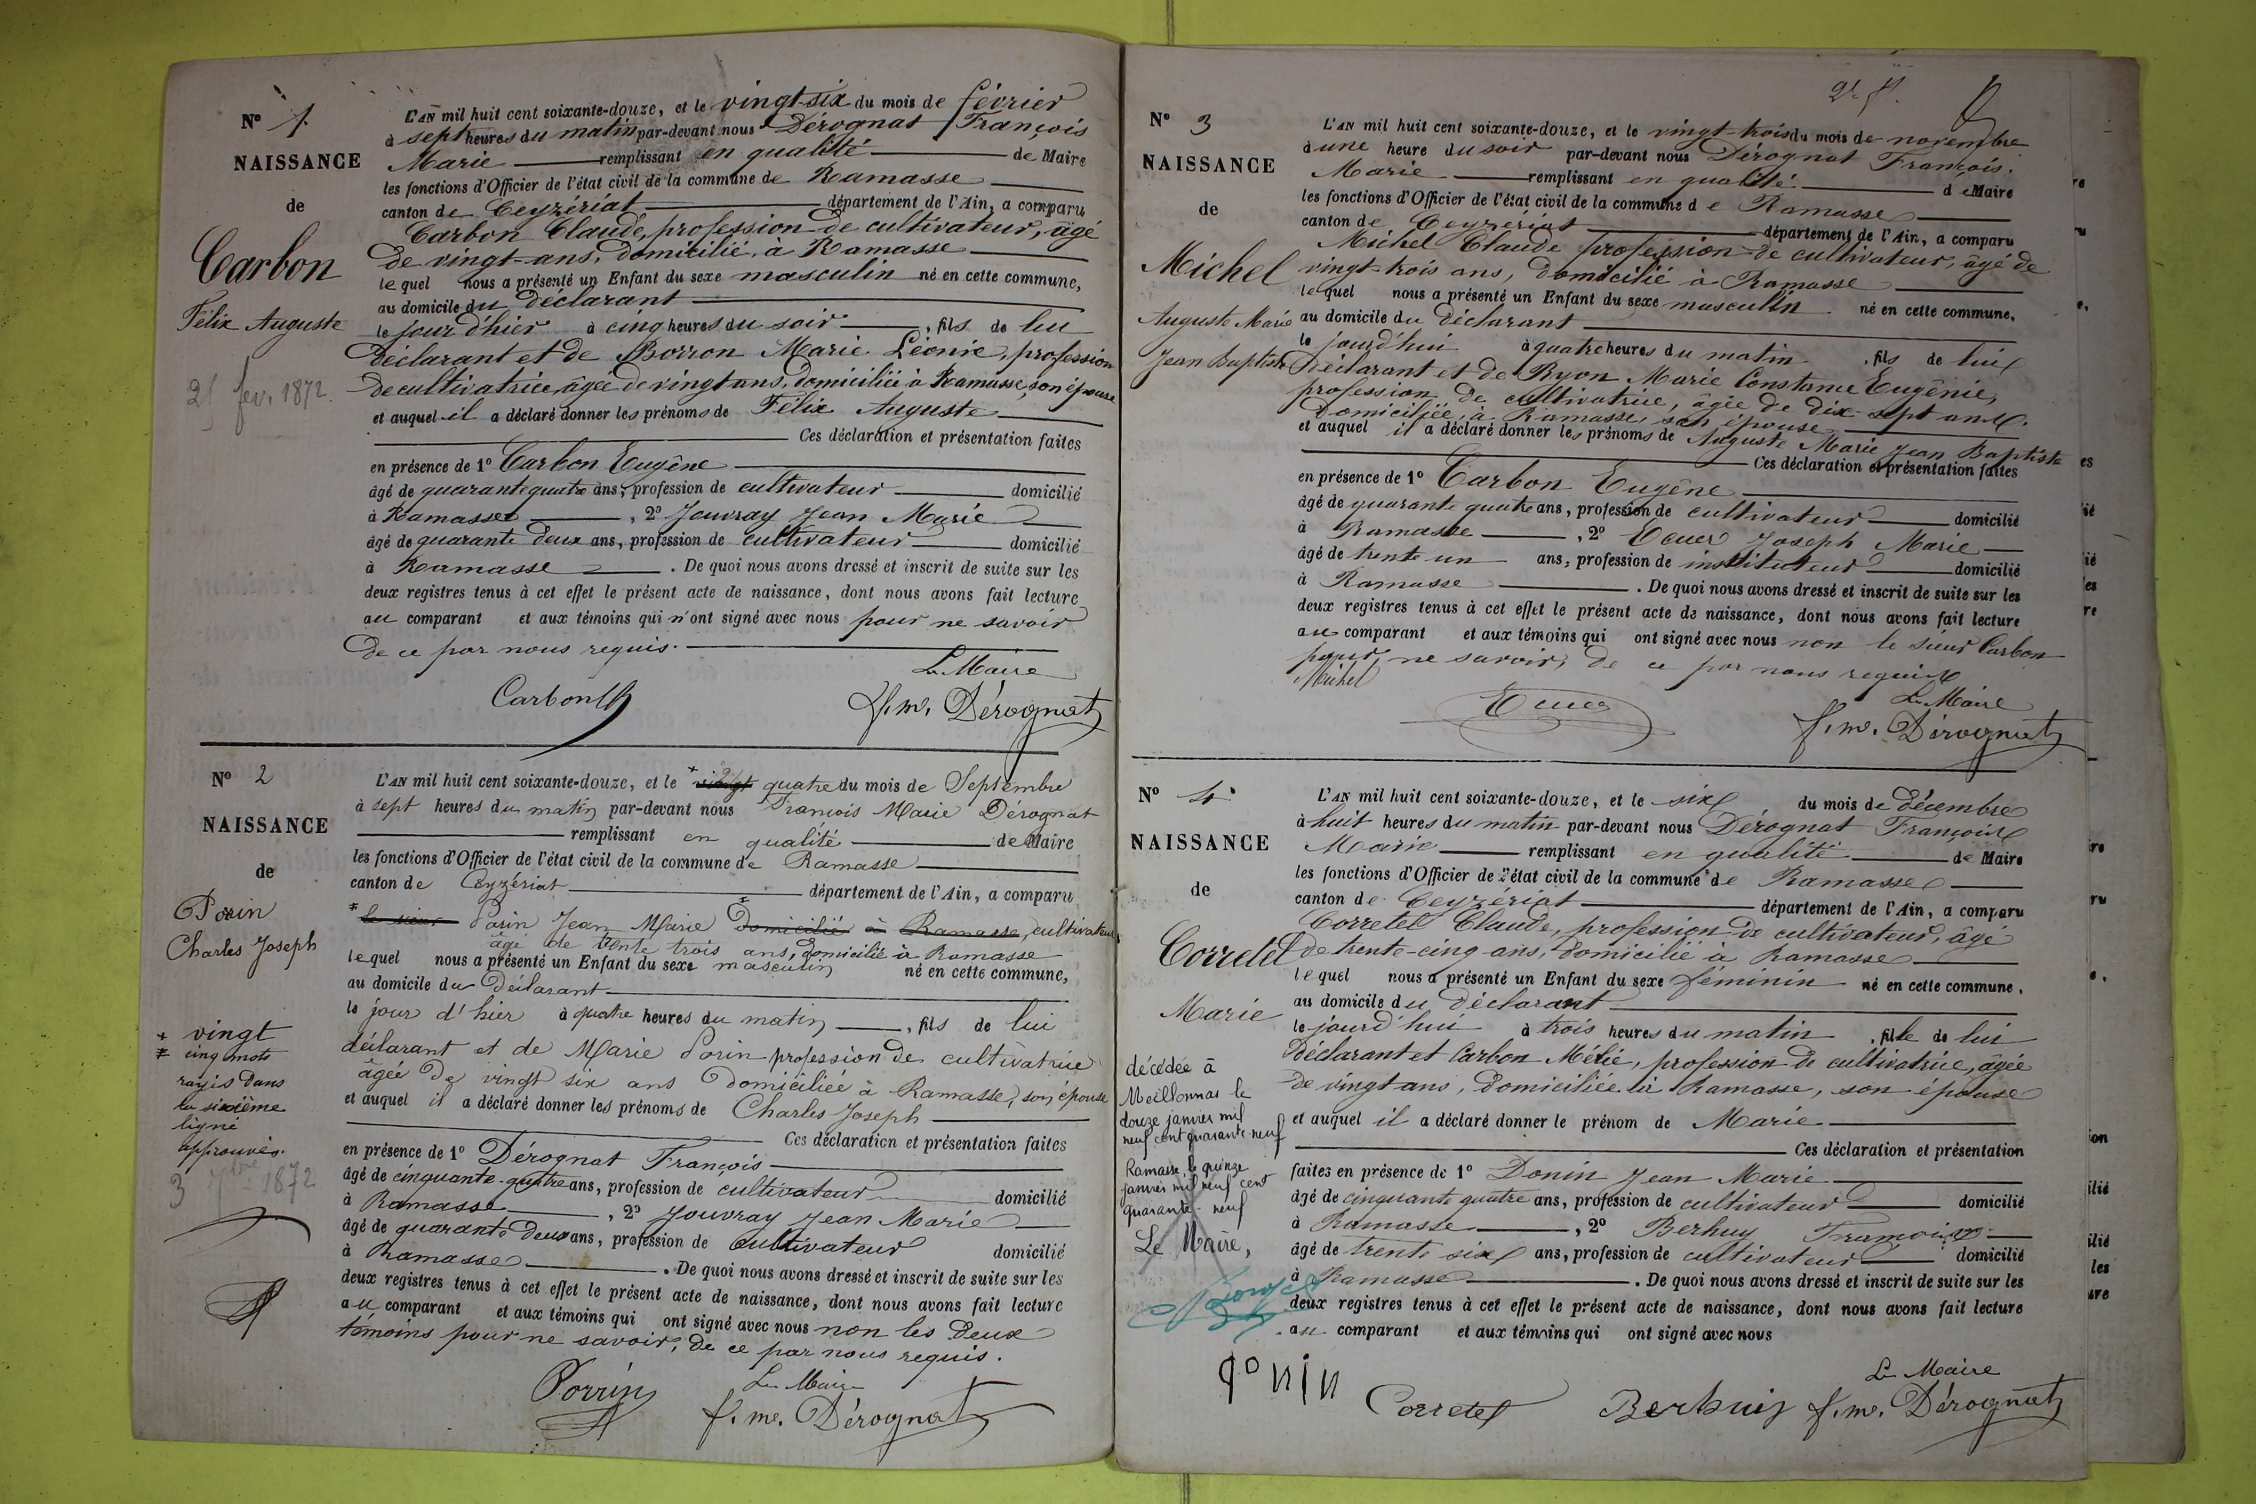 N° 1.
NAISSANCE
de
Carbon
Félix Auguste
25 fev. 1872.
L'AN mil huit cent soixante-douze, et le vingt-six du mois de février
à sept heures du matin par-devant nous Dérognat François
Marie remplissant en qualité de Maire
les fonctions d'Officier de l'état civil de la commune de Ramasse
canton de Ceyzériat département de l'Ain, a comparu
Carbon Claude, profession de cultivateur, âgé
de vingt ans, domicilié à Ramasse
lequel nous a présenté un Enfant du sexe masculin né en cette commune,
au domicile du déclarant
le jour d'hier à cinq heures du soir, fils de lui
déclarant et de Borron Marie Léonie, profession
de cultivatrice, âgée de vingt ans, domiciliée à Ramasse, son épouse
et auquel il a déclaré donner les prénoms de Félix Auguste
Ces déclaration et présentation faites
en présence de 1° Carbon Eugène
âgé de quarante quatre ans, profession de cultivateur domicilié
à Ramasse, 2° Jouvray Jean Marie
âgé de quarante deux ans, profession de cultivateur domicilié
à Ramasse. De quoi nous avons dressé et inscrit de suite sur les
deux registres tenus à cet effet le présent acte de naissance, dont nous avons fait lecture
au comparant et aux témoins qui n'ont signé avec nous pour ne savoir
de ce par nous requis.
Le Maire
Carbon
f. m. Dérognat
N° 2
NAISSANCE
de
Porin
Charles Joseph
* vingt
* cinq mots
rayés dans
la sixième
ligne
approuvés.
3 7bre 1872
L'AN mil huit cent soixante-douze, et le * vingt quatre du mois de Septembre
à sept heures du matin par-devant nous François Marie Dérognat
remplissant en qualité de Maire
les fonctions d'Officier de l'état civil de la commune de Ramasse
canton de Ceyzériat département de l'Ain, a comparu
* le sieur Porin Jean Marie * domicilié à Ramasse, cultivateur
âgé de trente trois ans, domicilié à Ramasse
lequel nous a présenté un Enfant du sexe masculin né en cette commune,
au domicile du Déclarant
le jour d'hier à quatre heures du matin, fils de lui
déclarant et de Marie Porin profession de cultivatrice
âgée de vingt six ans domiciliée à Ramasse, son épouse
et auquel il a déclaré donner les prénoms de Charles Joseph
Ces déclaration et présentation faites
en présence de 1° Dérognat François
âgé de cinquante-quatre ans, profession de cultivateur domicilié
à Ramasse, 2° Jouvray Jean Marie
âgé de quarante deux ans, profession de cultivateur domicilié
à Ramasse. De quoi nous avons dressé et inscrit de suite sur les
deux registres tenus à cet effet le présent acte de naissance, dont nous avons fait lecture
au comparant et aux témoins qui ont signé avec nous non les deux
témoins pour ne savoir, de ce par nous requis.
Le Maire
Porrin
f. m. Dérognat
N° 3
NAISSANCE
de
Michel
Auguste Marie
Jean Baptiste
L'AN mil huit cent soixante-douze, et le vingt-trois du mois de novembre
à une heure du soir par-devant nous Dérognat François
Marie remplissant en qualité de Maire
les fonctions d'Officier de l'état civil de la commune de Ramasse
canton de Ceyzériat département de l'Ain, a comparu
Michel Claude profession de cultivateur, âgé de
vingt-trois ans, domicilié à Ramasse
lequel nous a présenté un Enfant du sexe masculin né en cette commune,
au domicile du déclarant
le jourd'hui à quatre heures du matin, fils de lui
déclarant et de Byon Marie Constance Eugénie,
profession de cultivatrice, âgée de dix-sept ans.
domiciliée à Ramasse, son épouse
et auquel il a déclaré donner les prénoms de Auguste Marie Jean Baptiste
Ces déclaration et présentation faites
en présence de 1° Carbon Eugène
âgé de quarante quatre ans, profession de cultivateur domicilié
à Ramasse, 2° Ecuer Joseph Marie
âgé de trente un ans, profession de instituteur domicilié
à Ramasse. De quoi nous avons dressé et inscrit de suite sur les
deux registres tenus à cet effet le présent acte de naissance, dont nous avons fait lecture
au comparant et aux témoins qui ont signé avec nous non le sieur Carbon
pour ne savoir, de ce par nous requis
Michel
Ecuer
Le Maire
f. m. Dérognat
N° 4
NAISSANCE
de
Corretel
Marie
décédée à
Meillonnas le
douze janvier mil
neuf cent quarante-neuf
Ramasse, le quinze
janvier mil neuf cent
quarante-neuf
Le Maire,
L'AN mil huit cent soixante-douze, et le six du mois de décembre
à huit heures du matin par-devant nous Dérognat François
Marie remplissant en qualité de Maire
les fonctions d'Officier de l'état civil de la commune de Ramasse
canton de Ceyzériat département de l'Ain, a comparu
Corretel Claude, profession de cultivateur, âgé
de trente-cinq ans, domicilié à Ramasse
lequel nous a présenté un Enfant du sexe féminin né en cette commune,
au domicile du déclarant
le jourd'hui à trois heures du matin, fille de lui
Déclarant et Carbon Mélie, profession de cultivatrice, âgée
de vingt ans, domiciliée à Ramasse, son épouse
et auquel il a déclaré donner le prénom de Marie
Ces déclaration et présentation
faites en présence de 1° Donin Jean Marie
âgé de cinquante quatre ans, profession de cultivateur domicilié
à Ramasse, 2° Berhuy François
âgé de trente six ans, profession de cultivateur domicilié
à Ramasse. De quoi nous avons dressé et inscrit de suite sur les
deux registres tenus à cet effet le présent acte de naissance, dont nous avons fait lecture
au comparant et aux témoins qui ont signé avec nous
Le Maire
donin
Corretel
Berhuiy
f. m. Dérognat